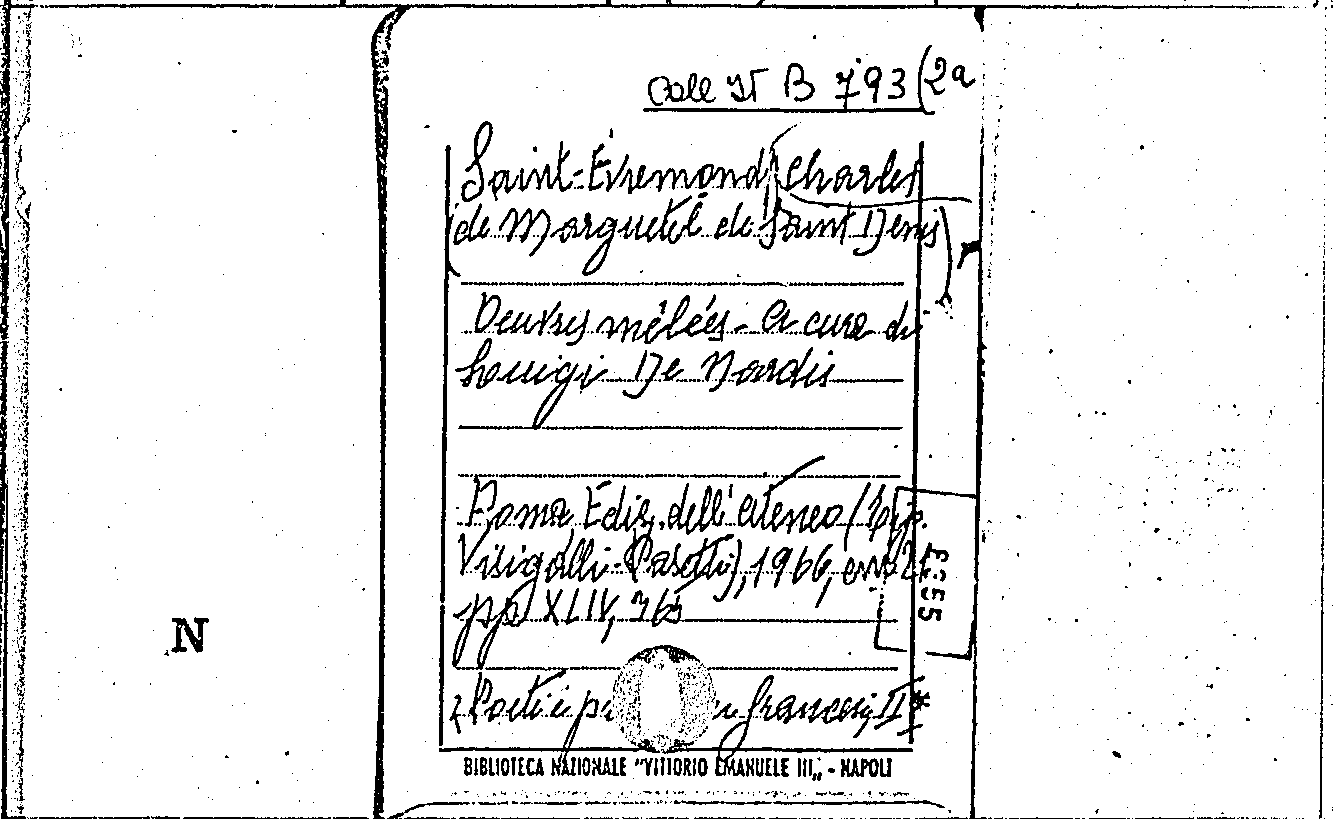 Coll. It B 793 (2a
Saint-Évremond, Charles
(de Marguetel de Saint Denis)
Oeuvres mêlées - A cura di
Luigi De Nardis
Roma, Ediz. dell'Ateneo (Tip.
Visigalli-Pasetti), 1966,
pp. XLIV, 365
Poeti e francesi, II*
N
BIBLIOTECA NAZIONALE "VITTORIO EMANUELE III„ - NAPOLI